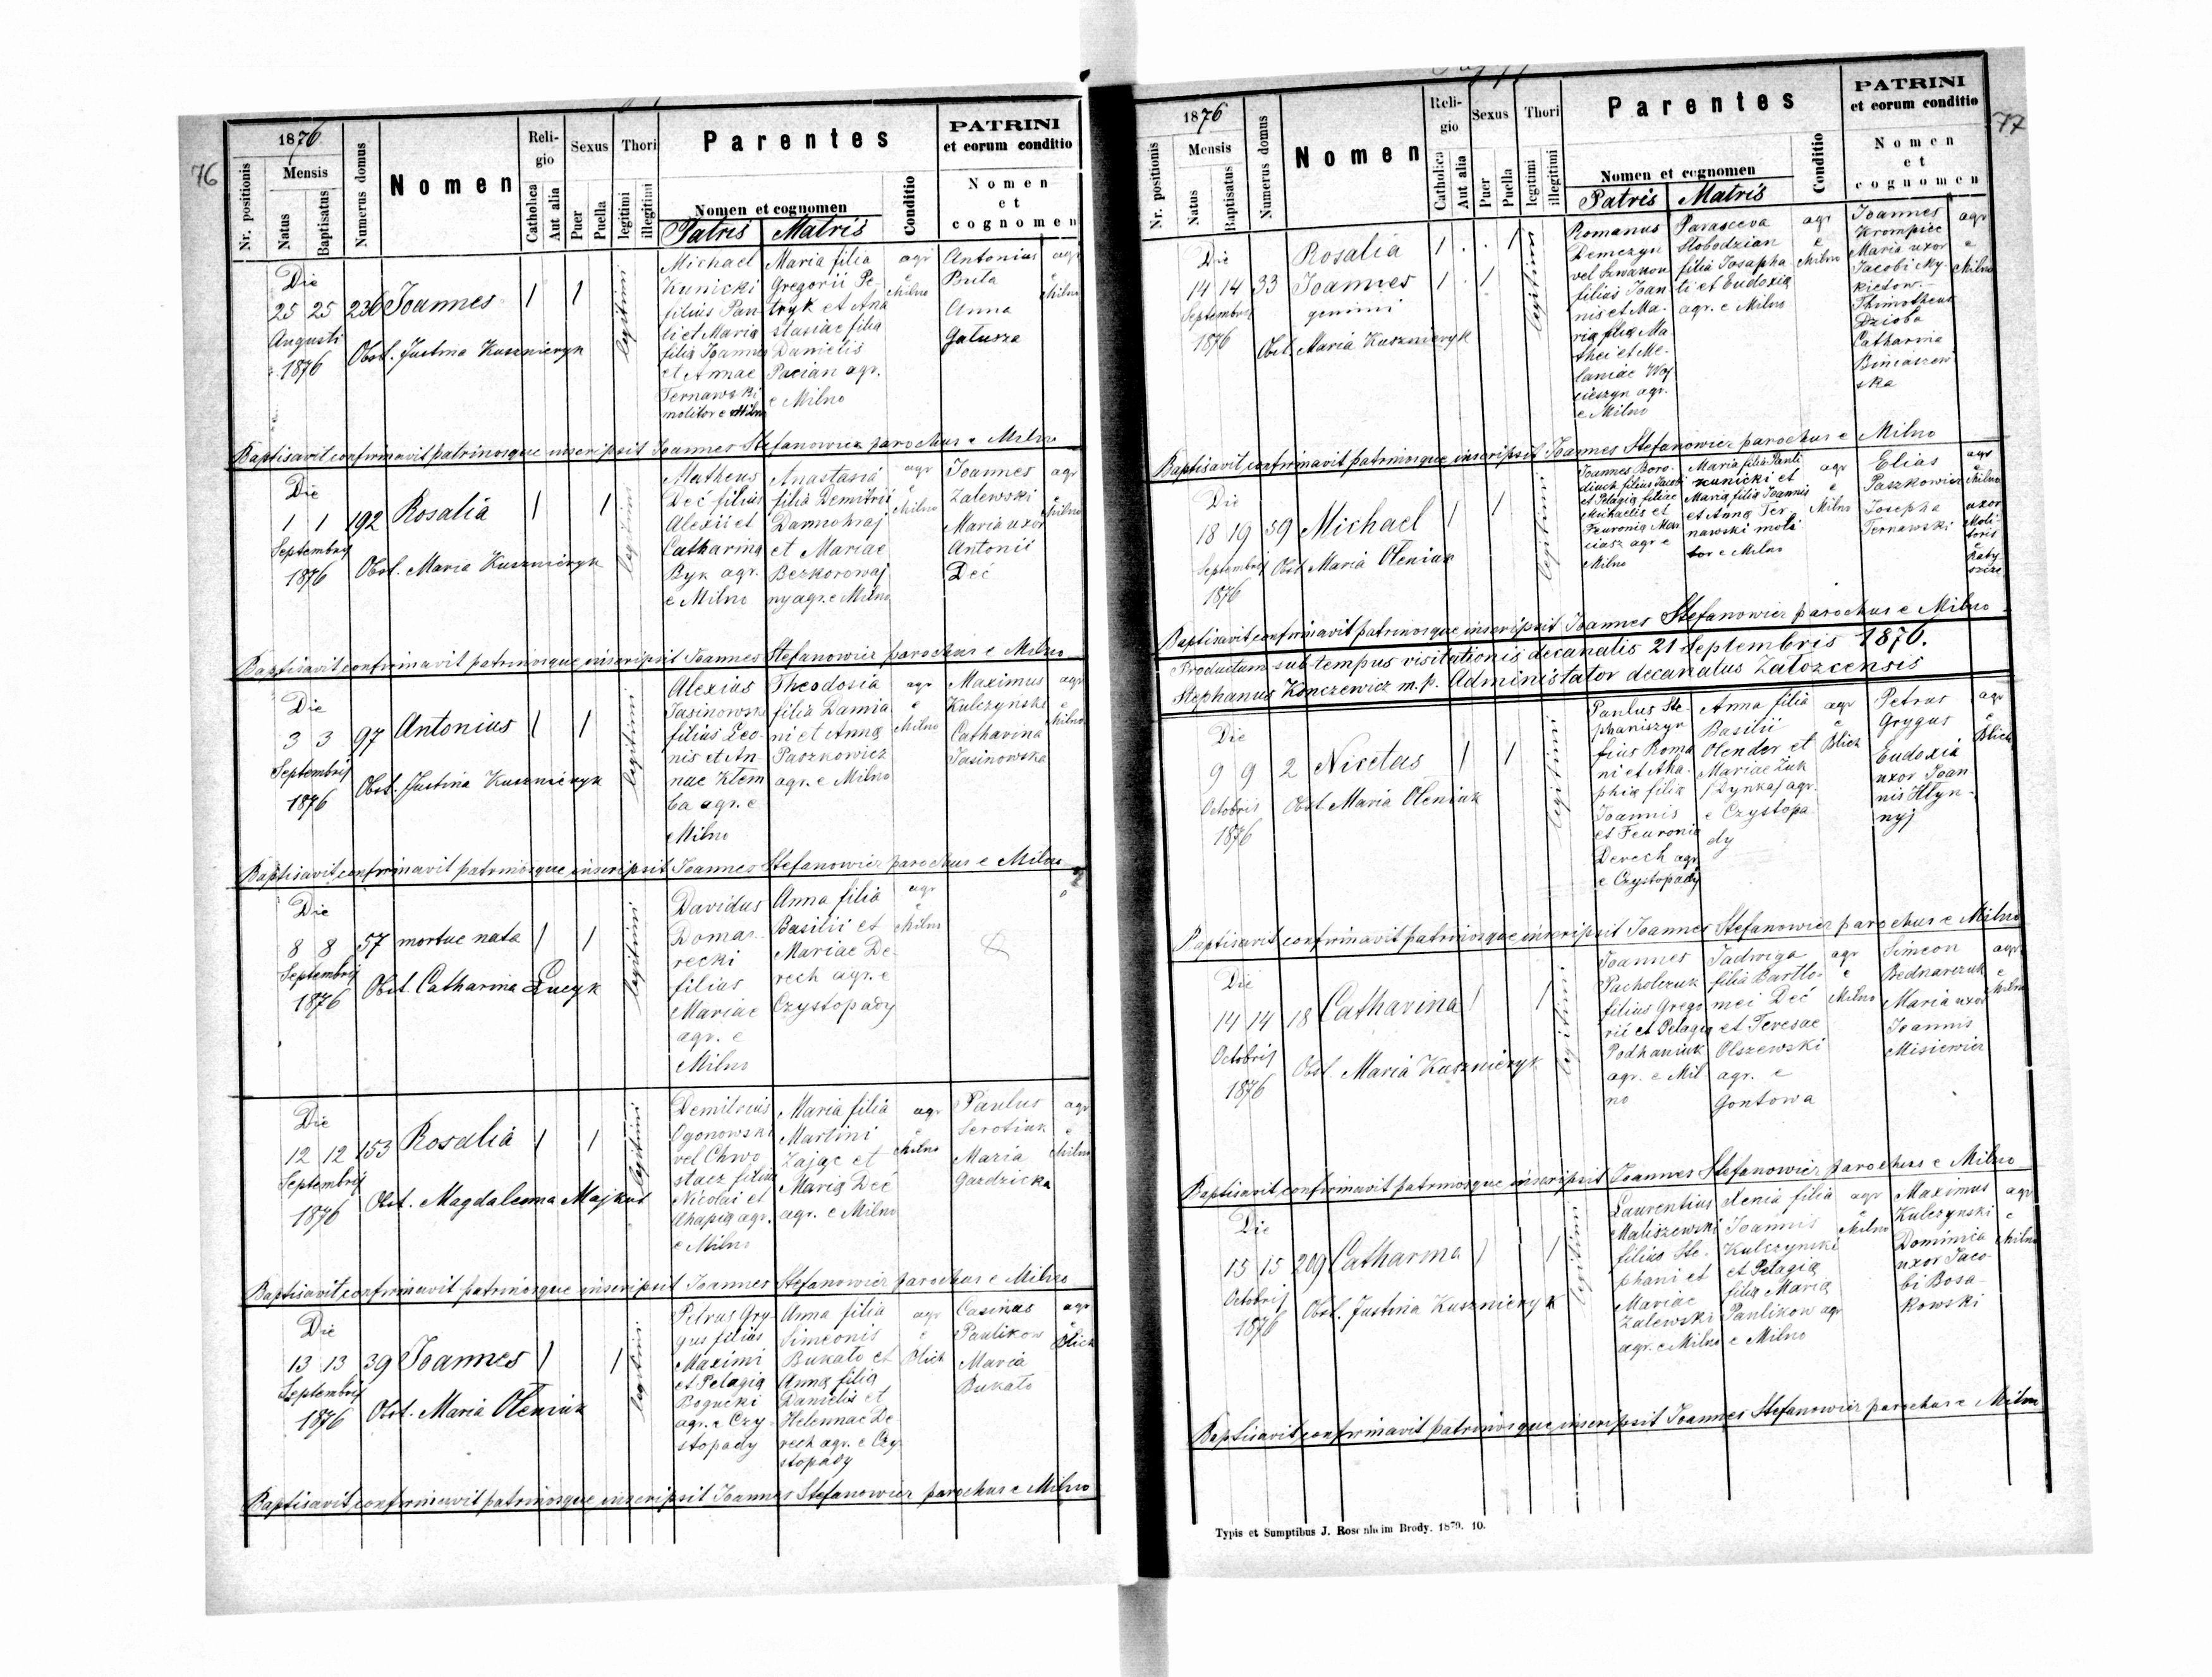 76
1876
Mensis
Nr. positionis
Natus
Baptisatus
Numerus domus
Nomen
Religio
Catholica
Aut alia
Sexus
Puer
Puella
Thori
legitimi
illegitimi
Parentes
Nomen et cognomen
Patris Matris
Conditio
PATRINI
et eorum conditio
Nomen
et
cognomen
Die
25 25 236 Joannes 1 1 legitimi
Augusti
1876
Obst. Justina Kusznieryk
Michael
Kunicki
filius Pan-
li et Maria
filia Joannis
et Annae
Ternawski
molitor e Milno
Maria filia
Gregorii Pe-
tryk et Ana
stasiae filia
Danielis
Pacian agr.
e Milno
agr
e
Milno
Antonius agr
Buta e
Anna Milno
Galusza
Baptisavit confirmavit patrinosque inscripsit Joannes Stefanowicz parochus e Milno
Die
1 1 192 Rosalia 1 1 legitimi
Septembris
1876
Obst. Maria Kusznieryk
Matheus
Deć filius
Alexii et
Catharina
Byk agr.
e Milno
Anastasia
filia Demitrii
Darmohraj
et Mariae
Bezkorowaj
ny agr. e Milno
agr
e
Milno
Joannes agr
Zalewski e
Maria uxor Milno
Antonii
Deć
Baptisavit confirmavit patrinosque inscripsit Joannes Stefanowicz parochus e Milno
Die
3 3 97 Antonius 1 1 legitimi
Septembris
1876
Obst. Justina Kusznieryk
Alexius
Jasinowski
filius Leo-
nis et An-
nae Klem
ba agr. e
Milno
Theodosia
filia Damia
ni et Anna
Paszkowicz
agr. e Milno
agr
e
Milno
Maximus agr
Kulczynski e
Catharina Milno
Jasinowska
Baptisavit confirmavit patrinosque inscripsit Joannes Stefanowicz parochus e Milno
Die
8 8 57 mortue nata 1 1 legitimi
Septembris
1876
Obst. Catharina Łucyk
Davidus
Domas-
recki
filius
Mariae
agr. e
Milno
Anna filia
Basilii et
Mariae De-
rech agr. e
Czystopady
agr
e
Milno
Die
12 12 153 Rosalia 1 1 legitimi
Septembris
1876
Obst. Magdalena Majkut
Demitrius
Ogonowski
vel Chwo
stacz filius
Nicolai et
Ahapia agr.
e Milno
Maria filia
Martini
Zając et
Maria Deć
agr. e Milno
agr
e
Milno
Paulus agr
Serotiuk e
Maria Milno
Gardzicka
Baptisavit confirmavit patrinosque inscripsit Joannes Stefanowicz parochus e Milno
Die
13 13 39 Joannes 1 1 legitimi
Septembris
1876
Obst. Maria Oleniuk
Petrus Gry-
gus filius
Maximi
et Pelagia
Bogucki
agr. e Czy-
stopady
Anna filia
Simeonis
Bukato et
Anna filia
Danielis et
Helennae De-
rech agr. e Czy-
stopady
agr
e
Blich
Casinus agr
Paulikow e
Maria Blich
Bukato
Baptisavit confirmavit patrinosque inscripsit Joannes Stefanowicz parochus e Milno
77
1876
Mensis
Nr. positionis
Natus
Baptisatus
Numerus domus
Nomen
Religio
Catholica
Aut alia
Sexus
Puer
Puella
Thori
legitimi
illegitimi
Parentes
Nomen et cognomen
Patris Matris
Conditio
PATRINI
et eorum conditio
Nomen
et
cognomen
Die Rosalia 1 . . 1
14 14 33 Joannes 1 . 1 legitimi
Septembris gemini
1876
Obst. Maria Kusznieryk
Romanus
Demczyn
vel Szwakow
filius Joan-
nis et Ma-
ria filia Ma
thei et Me-
laniae Woj
cieszyn agr.
e Milno
Parasceva
Slobodzian
filia Josapha
ti et Eudoxia
agr. e Milno
agr
e
Milno
Joannes agr
Krompiec e
Maria uxor Milno
Jacobi My-
kietow.
Thimotheus
Dzioba
Catharina
Biniaszew
ska
Baptisavit confirmavit patrinosque inscripsit Joannes Stefanowicz parochus e Milno
Die
18 19 59 Michael 1 1 legitimi
Septembris
1876
Obst. Maria Oleniuk
Joannes Boro-
diuck filius Jacobi
et Pelagia filiae
Michaelis et
Feuronia Mar
ciasz agr e
Milno
Maria filia Panti
Kunicki et
Maria filia Joannis
et Anna Ter-
nawski moli
tor e Milno
agr
e
Milno
Elias agr
Paszkowicz e Milno
Josepha uxor
Ternawski Moli-
toris
e
Ratyszcze
Baptisavit confirmavit patrinosque inscripsit Joannes Stefanowicz parochus e Milno
Productum sub tempus visitationis decanalis 21 Septembris 1876.
Stephanus Konczewicz m.p. Administator decanatus Załozcensis
Die
9 9 2 Nicetas 1 1 legitimi
Octobris
1876
Obst. Maria Oleniuk
Paulus Ste-
phaniszyn
filius Roma
ni et Aha-
phia filia
Joannis
et Feuronia
Derech agr
e Czystopady
Anna filia
Basilii
Olender et
Mariae Zuk
(Dynka) agr.
e Czystopa
dy
agr
e
Blich
Petrus agr
Grygus e
Eudoxia Blich
uxor Joan
nis Hlyn-
nyj
Baptisavit confirmavit patrinosque inscripsit Joannes Stefanowicz parochus e Milno
Die
14 14 18 Catharina 1 1 legitimi
Octobris
1876
Obst. Maria Kusznieryk
Joannes
Pacholczuk
filius Grego
rii et Pelagia
Podhaniuk
agr. e Mil-
no
Jadwiga
filia Bartło-
mei Deć
et Teresae
Olszewski
agr. e
Gontowa
agr
e
Milno
Simeon agr
Bednarczuk e
Maria uxor Milno
Joannis
Misiewicz
Baptisavit confirmavit patrinosque inscripsit Joannes Stefanowicz parochus e Milno
Die
15 15 209 Catharina 1 1 legitimi
Octobris
1876
Obst. Justina Kusznieryk
Laurentius
Maliszewski
filius Ste-
phani et
Mariae
Zalewski
agr. e Milno
Xenia filia
Joannis
Kulczynski
et Pelagia
filia Maria
Paulikow agr
e Milno
agr
e
Milno
Maximus agr
Kulczynski e
Dominica Milno
uxor Jaco-
bi Bosa-
kowski
Baptisavit confirmavit patrinosque inscripsit Joannes Stefanowicz parochus e Milno
Typis et Sumptibus J. Rosenheim Brody. 1879. 10.